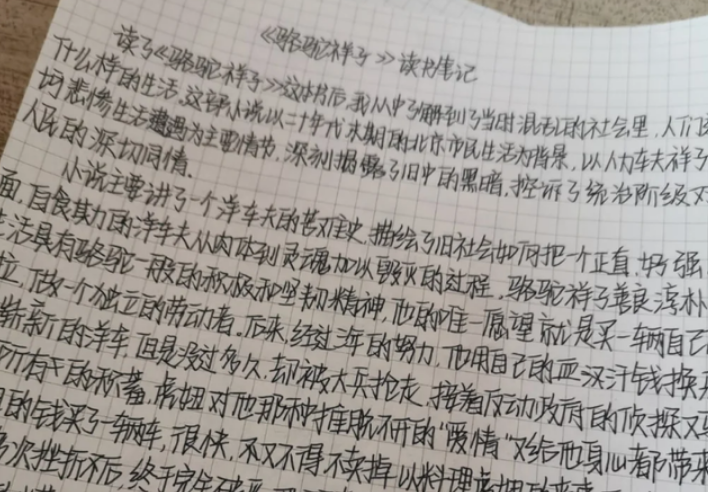 《骆驼祥子》读书笔记
读了《骆驼祥子》这本书后,我从中了解到了当时混乱的社会里,人们
什么样的生活.这部小说以二十年代末期的北京市民生活为背景,以人力车夫祥子
坊悲惨生活遭遇为主要情节,深刻揭露了旧中的黑暗,控诉了统治阶级对
人民的深切同情.
小说主要讲了一个洋车夫的苦难史.描绘了旧社会如何把一个正直,好强
面,自食其力的洋车夫从肉体到灵魂加以毁灭的过程,骆驼祥子善良淳朴
生活具有骆驼一般的积极和坚韧精神,他的唯一愿望就是买一辆自己
拉,做一个独立的劳动者.后来,经过三年的努力,他用自己的血汗钱换
崭新的洋车,但是没过多久,却被大兵抢走,接着反动政府的侦探又
所有的积蓄,虎妞对他那种推脱不开的“爱情”又给他身心都带来
的钱买了一辆车,很快,不又不得不卖掉以料理虎妞的
多次挫折后,终于完全